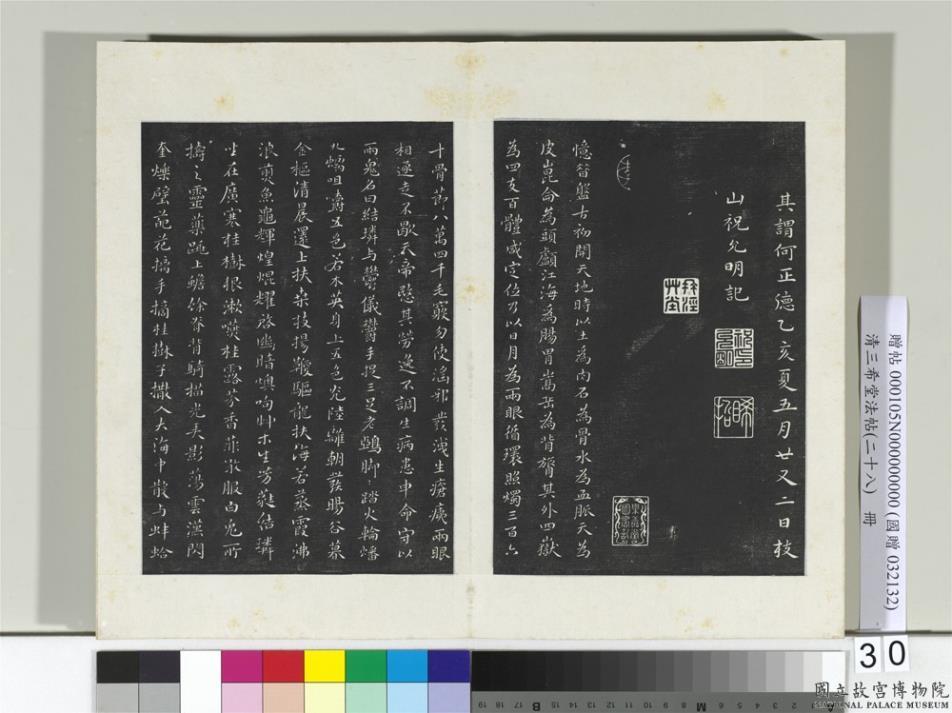 其謂何正德乙亥夏五月廿又二日枝
山祝允明記
憶昔盤古初開天地時以土為肉石為骨水為血脈天為
皮崑侖為頭顱江海為腸胃嵩岳為背膂其外四嶽
為四支百體咸定位乃以日月為兩眼循環照燭三百六
十骨節八萬四千毛竅勿使淫邪發洩生瘡痍兩眼
相逐走不歇天帝愍其勞逸不調生病患申命守以
兩鬼名曰結璘与鬱儀鬱手捉三足老鵶脚踏火輪蟠
九螭咀嚼五色若木英身上五色光陸離朝發暘谷暮
金樞清晨還上扶桑枝揚鞭驅龍扶海若蒸霞沸
浪煎魚龜輝煌焜耀啓幽暗燠呴草木生芳蕤結璘
坐在廣寒桂樹根漱嚥桂露芬香菲啖服白兔所
擣之靈藥跳上蟾蜍脊背騎描光弄影蕩雲漢閃
奎爍璧葩花摛手摘桂樹子撒入大海中散与蚌蛤
贈帖 000105N000000000 (國贈 032132)
清三希堂法帖(二十八) 冊
30
19 18 17 16 15 14 13 12 11 10 9 8
B
M
A
國立故宮博物院
NATIONAL PALACE MUSEUM